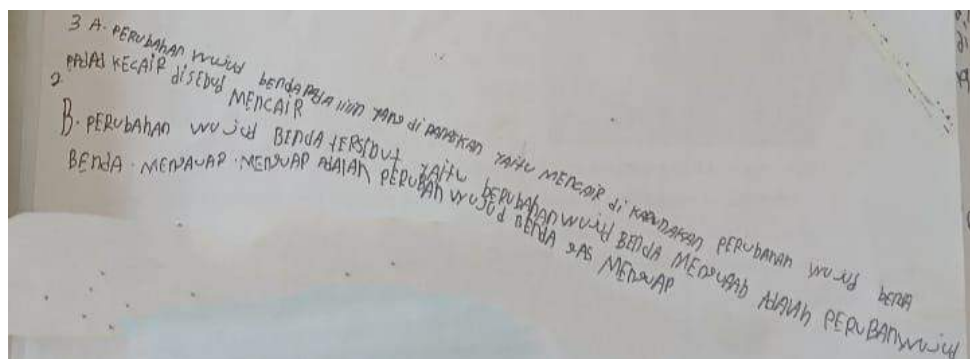 3 A. PERUBAHAN WUJUD BENDA PADA lilin YANG di PANASKAN YAITU MENCAIR di KARENAKAN PERUBAHAN WUJUD BENDA
PADAT KECAIR diSEBUd MENCAIR
2
B. PERUBAHAN WUJUd BENDA tERSEBUT YAITU BERUBAHAN WUJUd BENDA MENGUAP ADALAH PERUBAN WUJUd
BENdA. MENGUAP. MENGUAP ADALAH PERUBAH WUJUd BENDA GAS MENGUAP